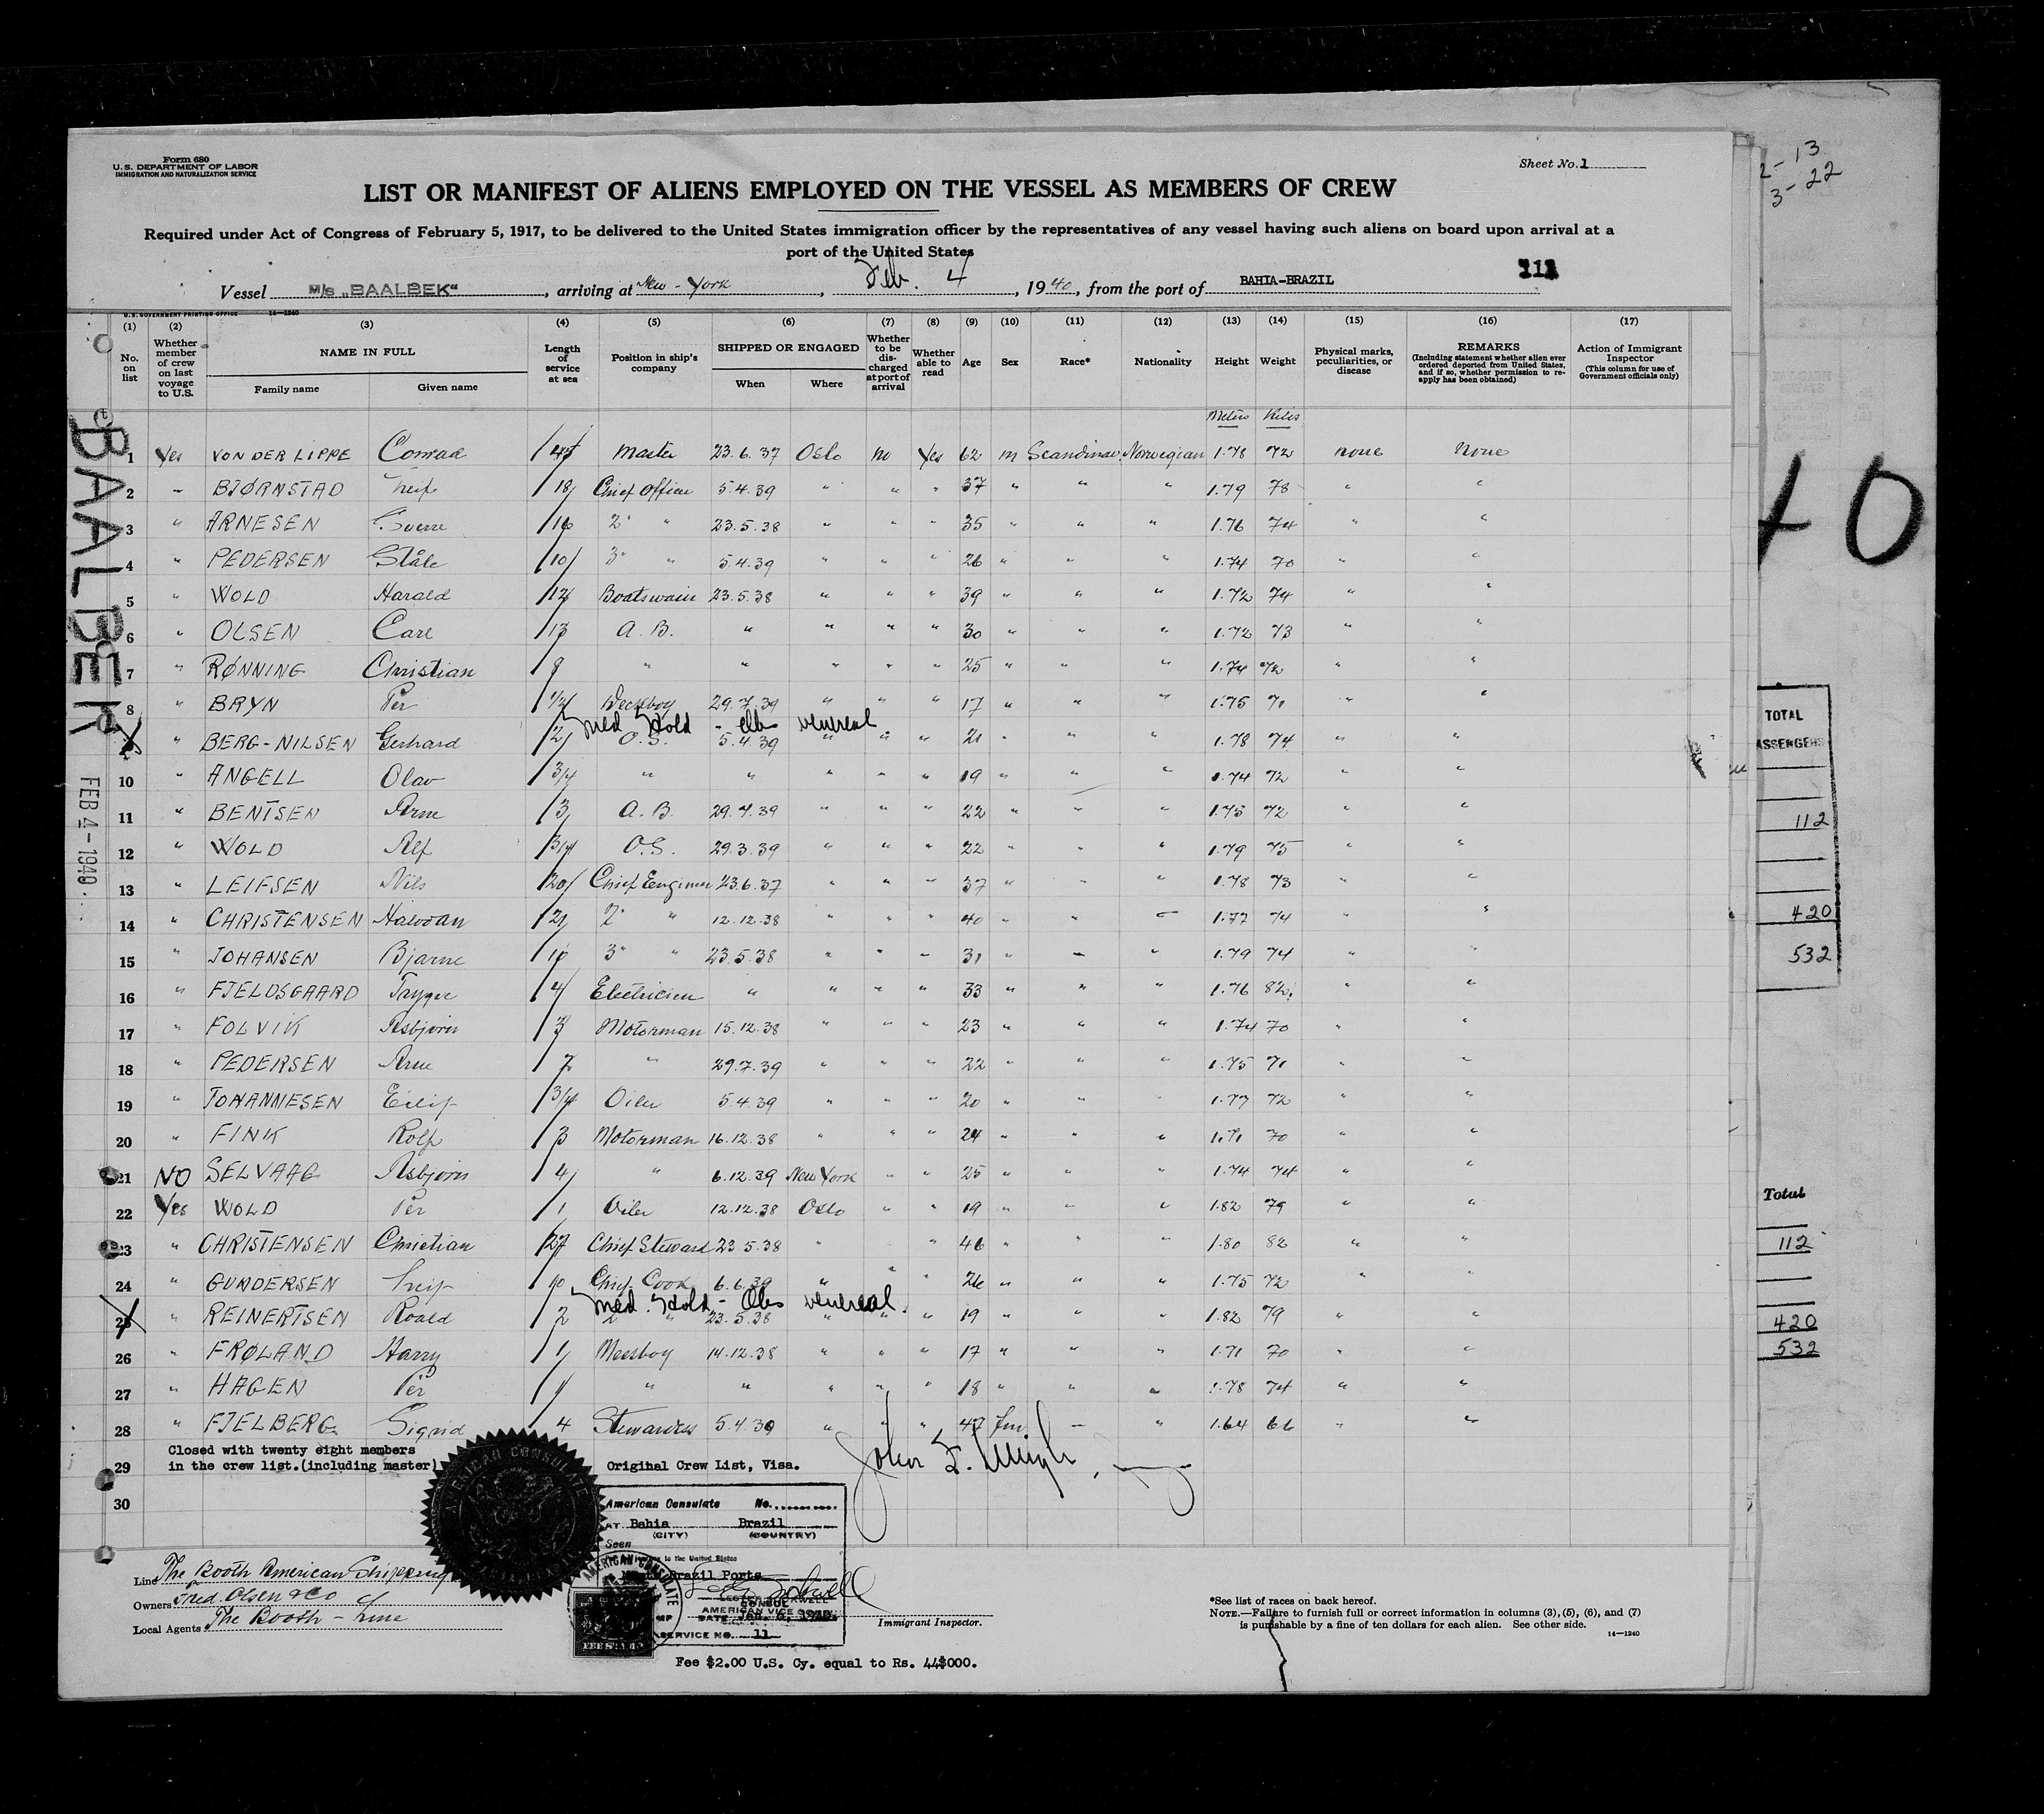 Form 680
U.S. DEPARTMENT OF LABOR
IMMIGRATION AND NATURALIZATION SERVICE
Sheet No. 1
LIST OR MANIFEST OF ALIENS EMPLOYED ON THE VESSEL AS MEMBERS OF CREW
Required under Act of Congress of February 5, 1917, to be delivered to the United States immigration officer by the representatives of any vessel having such aliens on board upon arrival at a
port of the United States
Vessel M/S „BAALBEK“, arriving at New-York, Feb. 4, 1940, from the port of BAHIA-BRAZIL
U.S. GOVERNMENT PRINTING OFFICE 14—1240
(1) (2) (3) (4) (5) (6) (7) (8) (9) (10) (11) (12) (13) (14) (15) (16) (17)
No. on list
Whether member of crew on last voyage to U.S.
NAME IN FULL
Family name Given name
Length of service at sea
Position in ship's company
SHIPPED OR ENGAGED
When Where
Whether to be discharged at port of arrival
Whether able to read
Age
Sex
Race*
Nationality
Height
Weight
Physical marks, peculiarities, or disease
REMARKS
(Including statement whether alien ever ordered deported from United States, and if so, whether permission to reapply has been obtained)
Action of Immigrant Inspector
(This column for use of Government officials only)
Meters Kilos
1 Yes VON DER LIPPE Conrad 45 Master 23.6.37 Oslo no Yes 62 m Scandinav. Norwegian 1.78 72 none none
2 " BJØRNSTAD Leif 18 Chief Officer 5.4.39 " " " 37 " " " 1.79 78 " "
3 " ARNESEN Sverre 16 2" " 23.5.38 " " " 35 " " " 1.76 74 " "
4 " PEDERSEN Ståle 10 3" " 5.4.39 " " " 26 " " " 1.74 70 " "
5 " WOLD Harald 12 Boatswain 23.5.38 " " " 39 " " " 1.72 74 " "
6 " OLSEN Carl 13 A.B. " " " " 30 " " " 1.72 73 " "
7 " RØNNING Christian 9 " " " " " 25 " " " 1.74 72 " "
8 " BRYN Per 1/2 Decksboy 29.7.39 " " " 17 " " " 1.75 71 " "
Med Hold - Obs venereal
" BERG-NILSEN Gerhard 2 O.S. 5.4.39 " " " 21 " " " 1.78 74 " "
10 " ANGELL Olav 3/4 " " " " " 19 " " " 1.74 72 " "
11 " BENTSEN Arne 3 A.B. 29.7.39 " " " 22 " " " 1.75 72 " "
12 " WOLD Alf 3/4 O.S. 29.3.39 " " " 22 " " " 1.79 75 " "
13 " LEIFSEN Nils 20 Chief Engineer 23.6.37 " " " 37 " " " 1.78 73 " "
14 " CHRISTENSEN Halvdan 21 2" " 12.12.38 " " " 40 " " " 1.77 74 " "
15 " JOHANSEN Bjarne 10 3" " 23.5.38 " " " 31 " " " 1.79 74 " "
16 " FJELDSGAARD Trygve 4 Electricien " " " " 33 " " " 1.76 82 " "
17 " FOLVIK Asbjørn 3 Motorman 15.12.38 " " " 23 " " " 1.74 70 " "
18 " PEDERSEN Arne 7 " 29.7.39 " " " 22 " " " 1.75 71 " "
19 " JOHANNESEN Eilif 3/4 Oiler 5.4.39 " " " 20 " " " 1.77 72 " "
20 " FINK Rolf 3 Motorman 16.12.38 " " " 24 " " " 1.71 70 " "
21 NO SELVAAG Asbjørn 4 " 6.12.39 New York " " 25 " " " 1.74 74 " "
22 Yes WOLD Per 1 Oiler 12.12.38 Oslo " " 19 " " " 1.82 79 " "
23 " CHRISTENSEN Christian 27 Chief Steward 23.5.38 " " 46 " " " 1.80 82 " "
24 " GUNDERSEN Leif 10 Chief Cook 6.6.39 " " " 26 " " " 1.75 72 " "
Med. Hold - Obs venereal.
25 " REINERTSEN Roald 2 2" " 23.5.38 " " " 19 " " " 1.82 79 " "
26 " FRØLAND Harry 1 Messboy 14.12.38 " " " 17 " " " 1.71 70 " "
27 " HAGEN Per 1 " " " " " 18 " " " 1.78 74 " "
28 " FJELBERG Sigrid 4 Stewardess 5.4.39 " " " 47 fm. " " 1.64 66 " "
Closed with twenty eight members
29 in the crew list.(including master)
Original Crew List, Visa.
30
American Consulate No.
AT Bahia Brazil
(CITY) (COUNTRY)
Seen
to the United States
Brazil Ports
CONSUL
AMERICAN VICE
DATE
SERVICE NO. 11
AMERICAN CONSULATE
FEE STAMP
Fee $2.00 U.S. Cy. equal to Rs. 44$000.
Line The Booth American Shipping
Owners Fred. Olsen & Co
Local Agents The Booth-Line
Immigrant Inspector.
*See list of races on back hereof.
NOTE.—Failure to furnish full or correct information in columns (3), (5), (6), and (7)
is punishable by a fine of ten dollars for each alien. See other side.
14—1240
BAALBEK
FEB 4-1940
2-13
3-22
40
TOTAL
112
420
532
Total
112
420
532